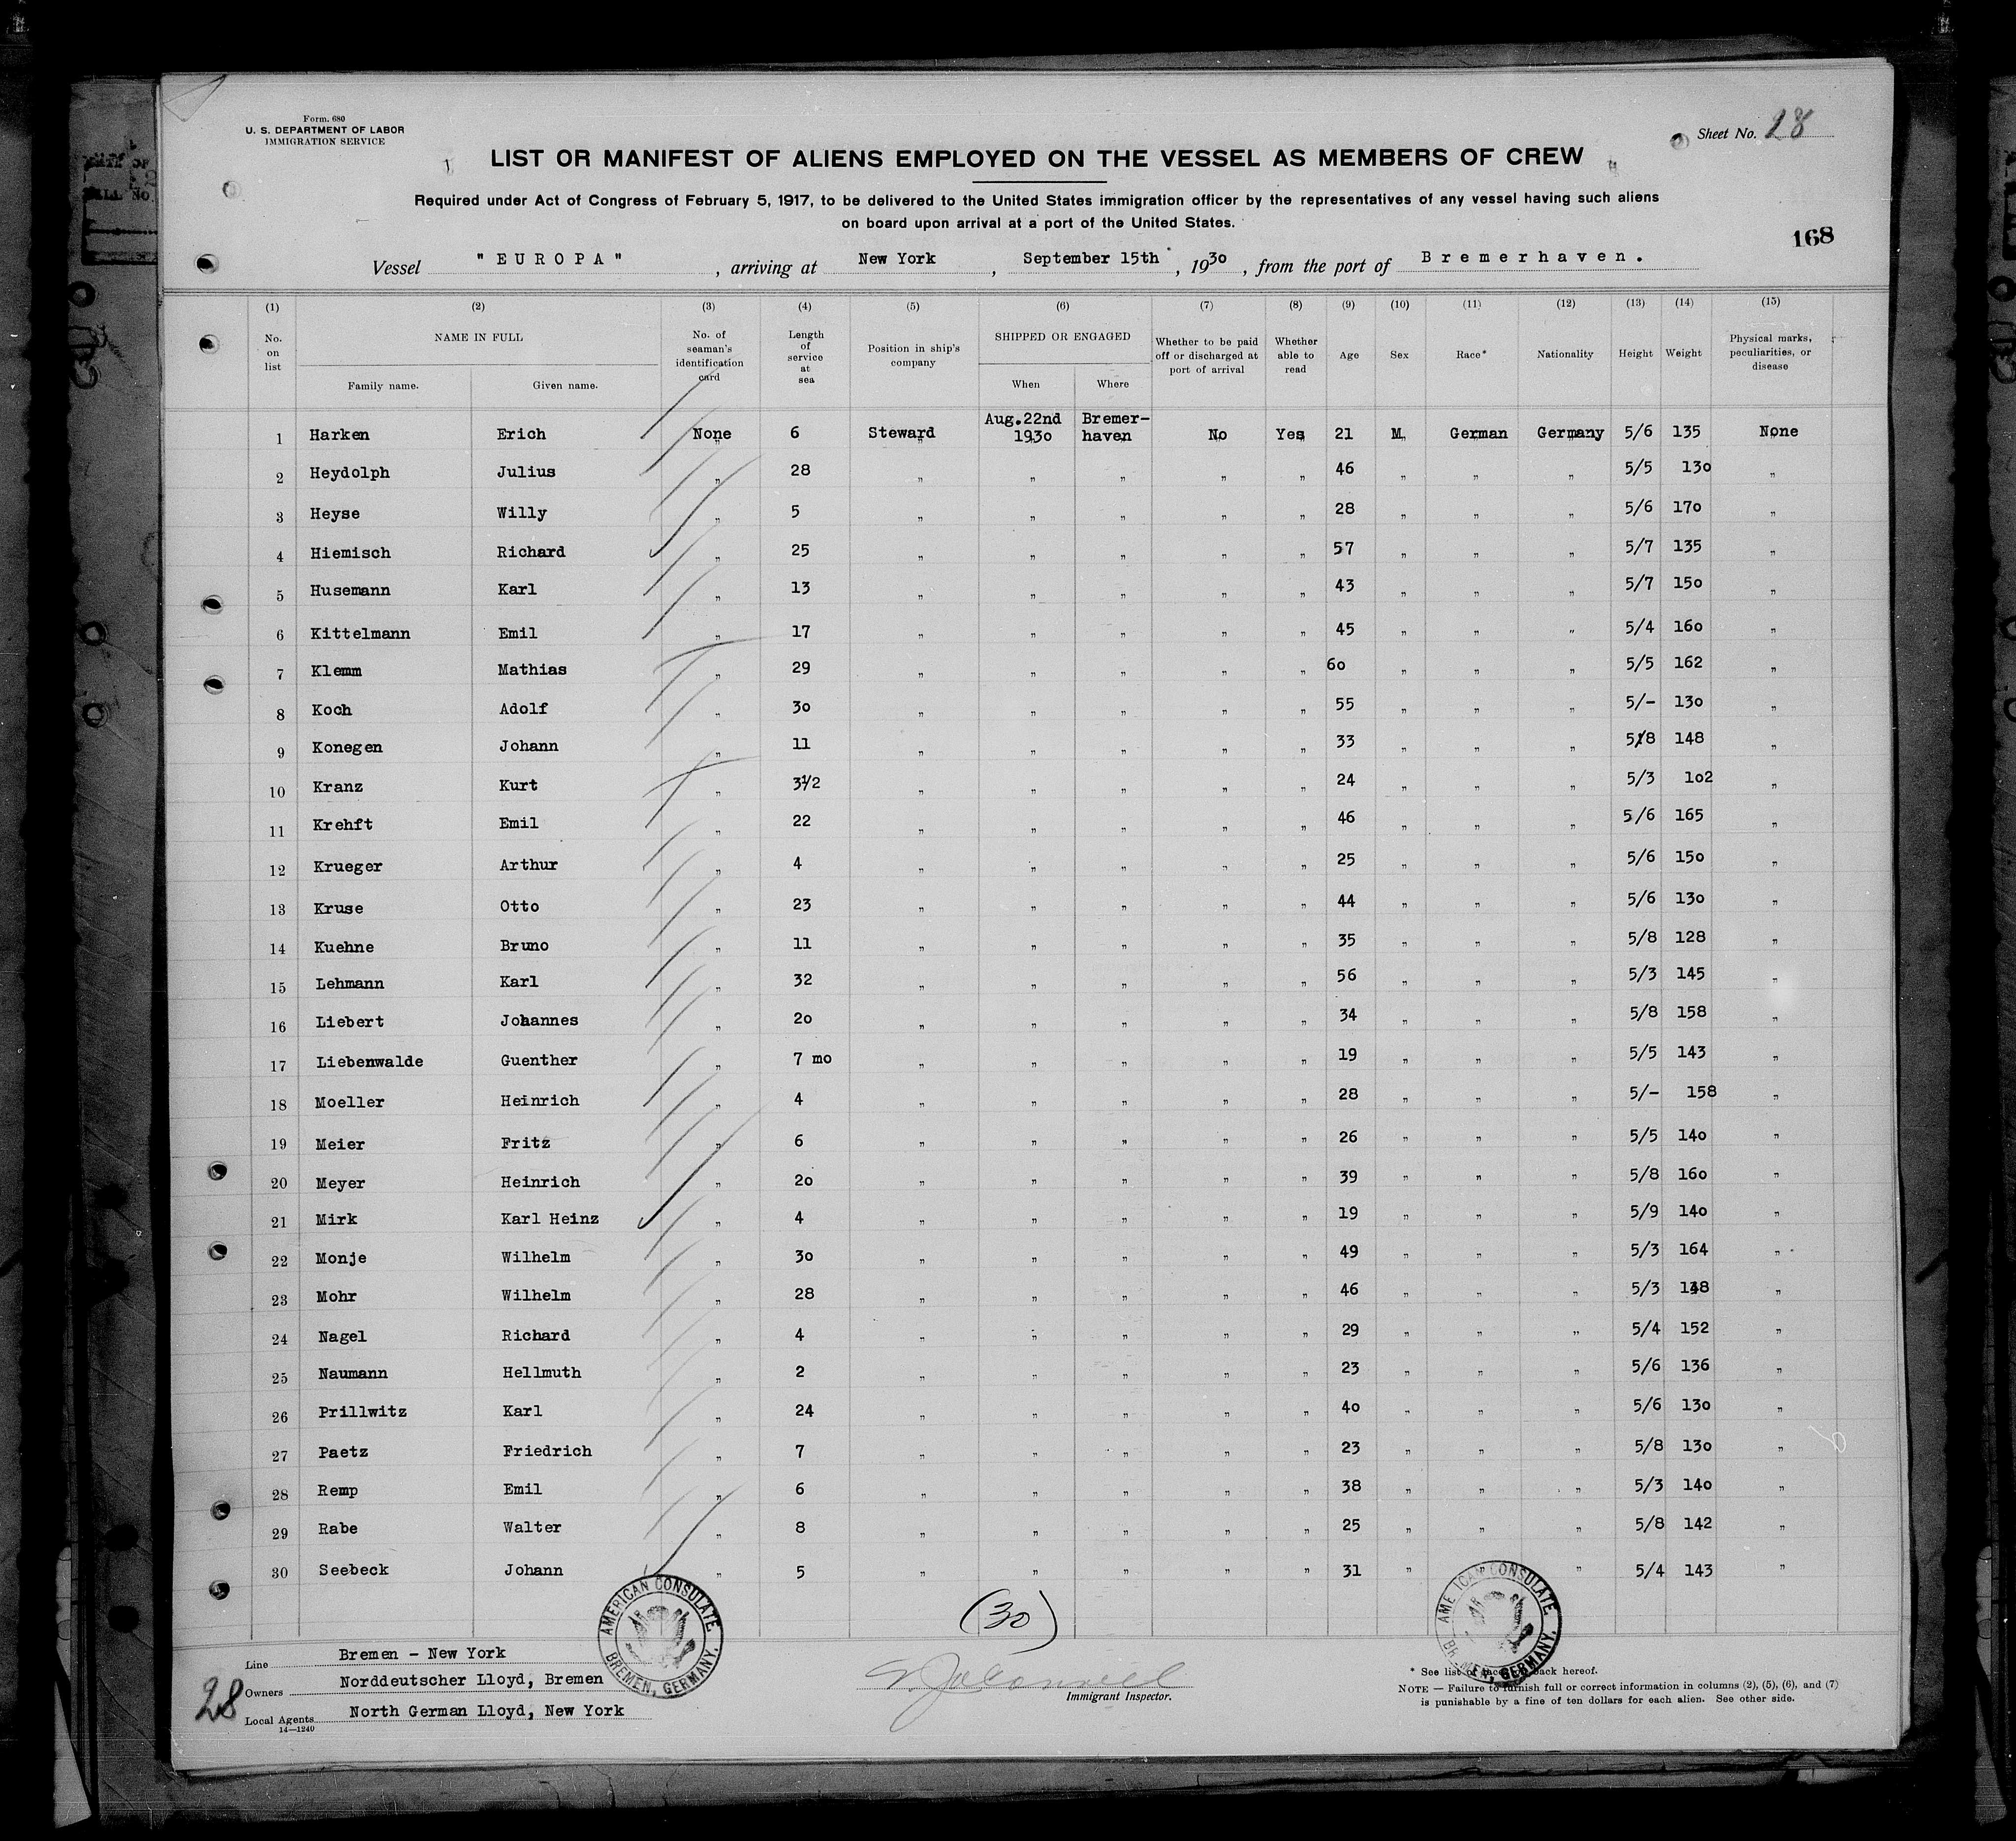 Form. 680
U. S. DEPARTMENT OF LABOR
IMMIGRATION SERVICE
Sheet No. 28
LIST OR MANIFEST OF ALIENS EMPLOYED ON THE VESSEL AS MEMBERS OF CREW
Required under Act of Congress of February 5, 1917, to be delivered to the United States immigration officer by the representatives of any vessel having such aliens
on board upon arrival at a port of the United States.
168
Vessel "EUROPA", arriving at New York, September 15th, 1930, from the port of Bremerhaven.
(1) (2) (3) (4) (5) (6) (7) (8) (9) (10) (11) (12) (13) (14) (15)
No. on list NAME IN FULL Family name. Given name. No. of seaman's identification card Length of service at sea Position in ship's company SHIPPED OR ENGAGED When Where Whether to be paid off or discharged at port of arrival Whether able to read Age Sex Race* Nationality Height Weight Physical marks, peculiarities, or disease
1 Harken Erich None 6 Steward Aug.22nd 1930 Bremer-haven No Yes 21 M. German Germany 5/6 135 None
2 Heydolph Julius " 28 " " " " " 46 " " " 5/5 130 "
3 Heyse Willy " 5 " " " " " 28 " " " 5/6 170 "
4 Hiemisch Richard " 25 " " " " " 57 " " " 5/7 135 "
5 Husemann Karl " 13 " " " " " 43 " " " 5/7 150 "
6 Kittelmann Emil " 17 " " " " " 45 " " " 5/4 160 "
7 Klemm Mathias " 29 " " " " " 60 " " " 5/5 162 "
8 Koch Adolf " 30 " " " " " 55 " " " 5/- 130 "
9 Konegen Johann " 11 " " " " " 33 " " " 5/8 148 "
10 Kranz Kurt " 3½ " " " " " 24 " " " 5/3 102 "
11 Krehft Emil " 22 " " " " " 46 " " " 5/6 165 "
12 Krueger Arthur " 4 " " " " " 25 " " " 5/6 150 "
13 Kruse Otto " 23 " " " " " 44 " " " 5/6 130 "
14 Kuehne Bruno " 11 " " " " " 35 " " " 5/8 128 "
15 Lehmann Karl " 32 " " " " " 56 " " " 5/3 145 "
16 Liebert Johannes " 20 " " " " " 34 " " " 5/8 158 "
17 Liebenwalde Guenther " 7 mo " " " " " 19 " " " 5/5 143 "
18 Moeller Heinrich " 4 " " " " " 28 " " " 5/- 158 "
19 Meier Fritz " 6 " " " " " 26 " " " 5/5 140 "
20 Meyer Heinrich " 20 " " " " " 39 " " " 5/8 160 "
21 Mirk Karl Heinz " 4 " " " " " 19 " " " 5/9 140 "
22 Monje Wilhelm " 30 " " " " " 49 " " " 5/3 164 "
23 Mohr Wilhelm " 28 " " " " " 46 " " " 5/3 "
24 Nagel Richard " 4 " " " " " 29 " " " 5/4 152 "
25 Naumann Hellmuth " 2 " " " " " 23 " " " 5/6 136 "
26 Prillwitz Karl " 24 " " " " " 40 " " " 5/6 130 "
27 Paetz Friedrich " 7 " " " " " 23 " " " 5/8 130 "
28 Remp Emil " 6 " " " " " 38 " " " 5/3 140 "
29 Rabe Walter " 8 " " " " " 25 " " " 5/8 142 "
30 Seebeck Johann " 5 " " " " " 31 " " " 5/4 143 "
(30)
AMERICAN CONSULATE, BREMEN, GERMANY.
AMERICAN CONSULATE, BREMEN, GERMANY.
Line Bremen - New York
Owners Norddeutscher Lloyd, Bremen
Local Agents North German Lloyd, New York
28
14—1240
Immigrant Inspector.
* See list of races on back hereof.
NOTE — Failure to furnish full or correct information in columns (2), (5), (6), and (7)
is punishable by a fine of ten dollars for each alien. See other side.